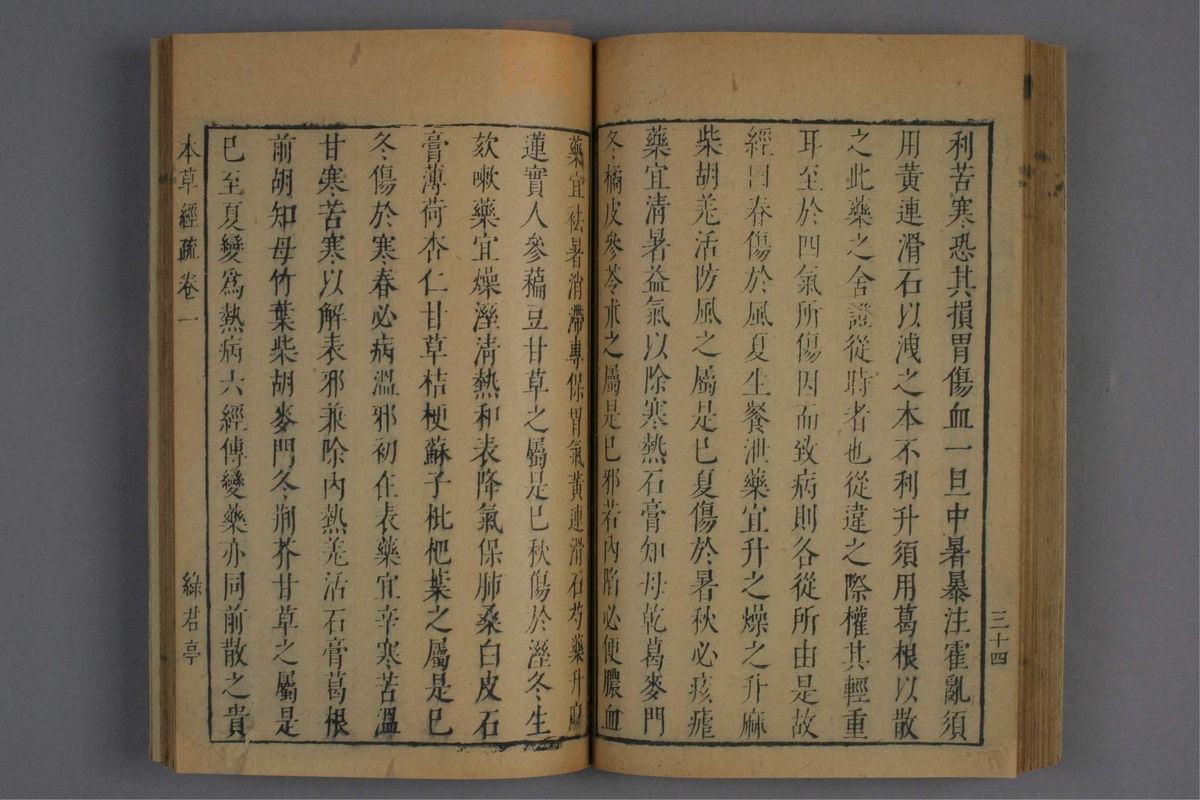 三十四
利苦寒恐其損胃傷血一旦中暑暴注霍亂須
用黃連滑石以洩之本不利升須用葛根以散
之此藥之舍證從時者也從違之際權其輕重
耳至於四氣所傷因而致病則各從所由是故
經曰春傷於風夏生餐泄藥宜升之燥之升麻
柴胡羌活防風之屬是已夏傷於暑秋必痎瘧
藥宜清暑益氣以除寒熱石膏知母乾葛麥門
冬橘皮參苓朮之屬是已邪若內陷必便膿血
藥宜祛暑消滯專保胃氣黃連滑石芍藥升麻
蓮實人參藊豆甘草之屬是已秋傷於溼冬生
欬嗽藥宜燥溼清熱和表降氣保肺桑白皮石
膏薄荷杏仁甘草桔梗蘇子枇杷葉之屬是已
冬傷於寒春必病溫邪初在表藥宜辛寒苦溫
甘寒苦寒以解表邪兼除內熱羌活石膏葛根
前胡知母竹葉柴胡麥門冬荊芥甘草之屬是
已至夏變爲熱病六經傳變藥亦同前散之貴
本草經疏 卷一 綠君亭